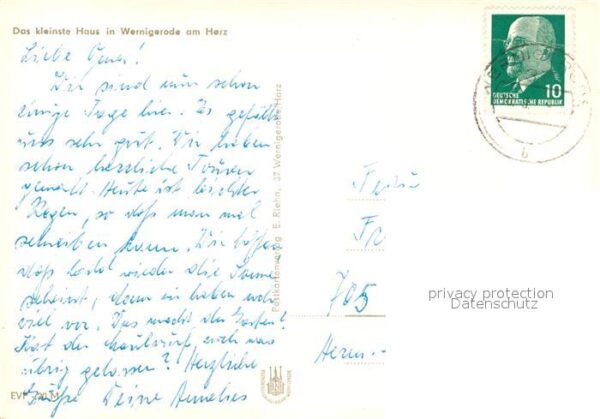 Das kleinste Haus in Wernigerode am Harz
Liebe Omi!
Wir sind nun schon
einige Tage hier. Es gefällt
uns sehr gut. Wir haben
schon herrliche Touren
gemacht. Heute ist leichter
Regen, so daß man mal
schreiben kann. Wir hoffen
daß bald wieder die Sonne
scheint, denn wir haben noch
viel vor. Was macht der Garten?
Hat der Maulwurf, euch was
übrig gelassen? Herzliche
Grüße Deine Annelies
Postkartenverlag E. Riehn, 37 Wernigerode/Harz
10
DEUTSCHE
DEMOKRATISCHE REPUBLIK
b
705
privacy protection
Datenschutz